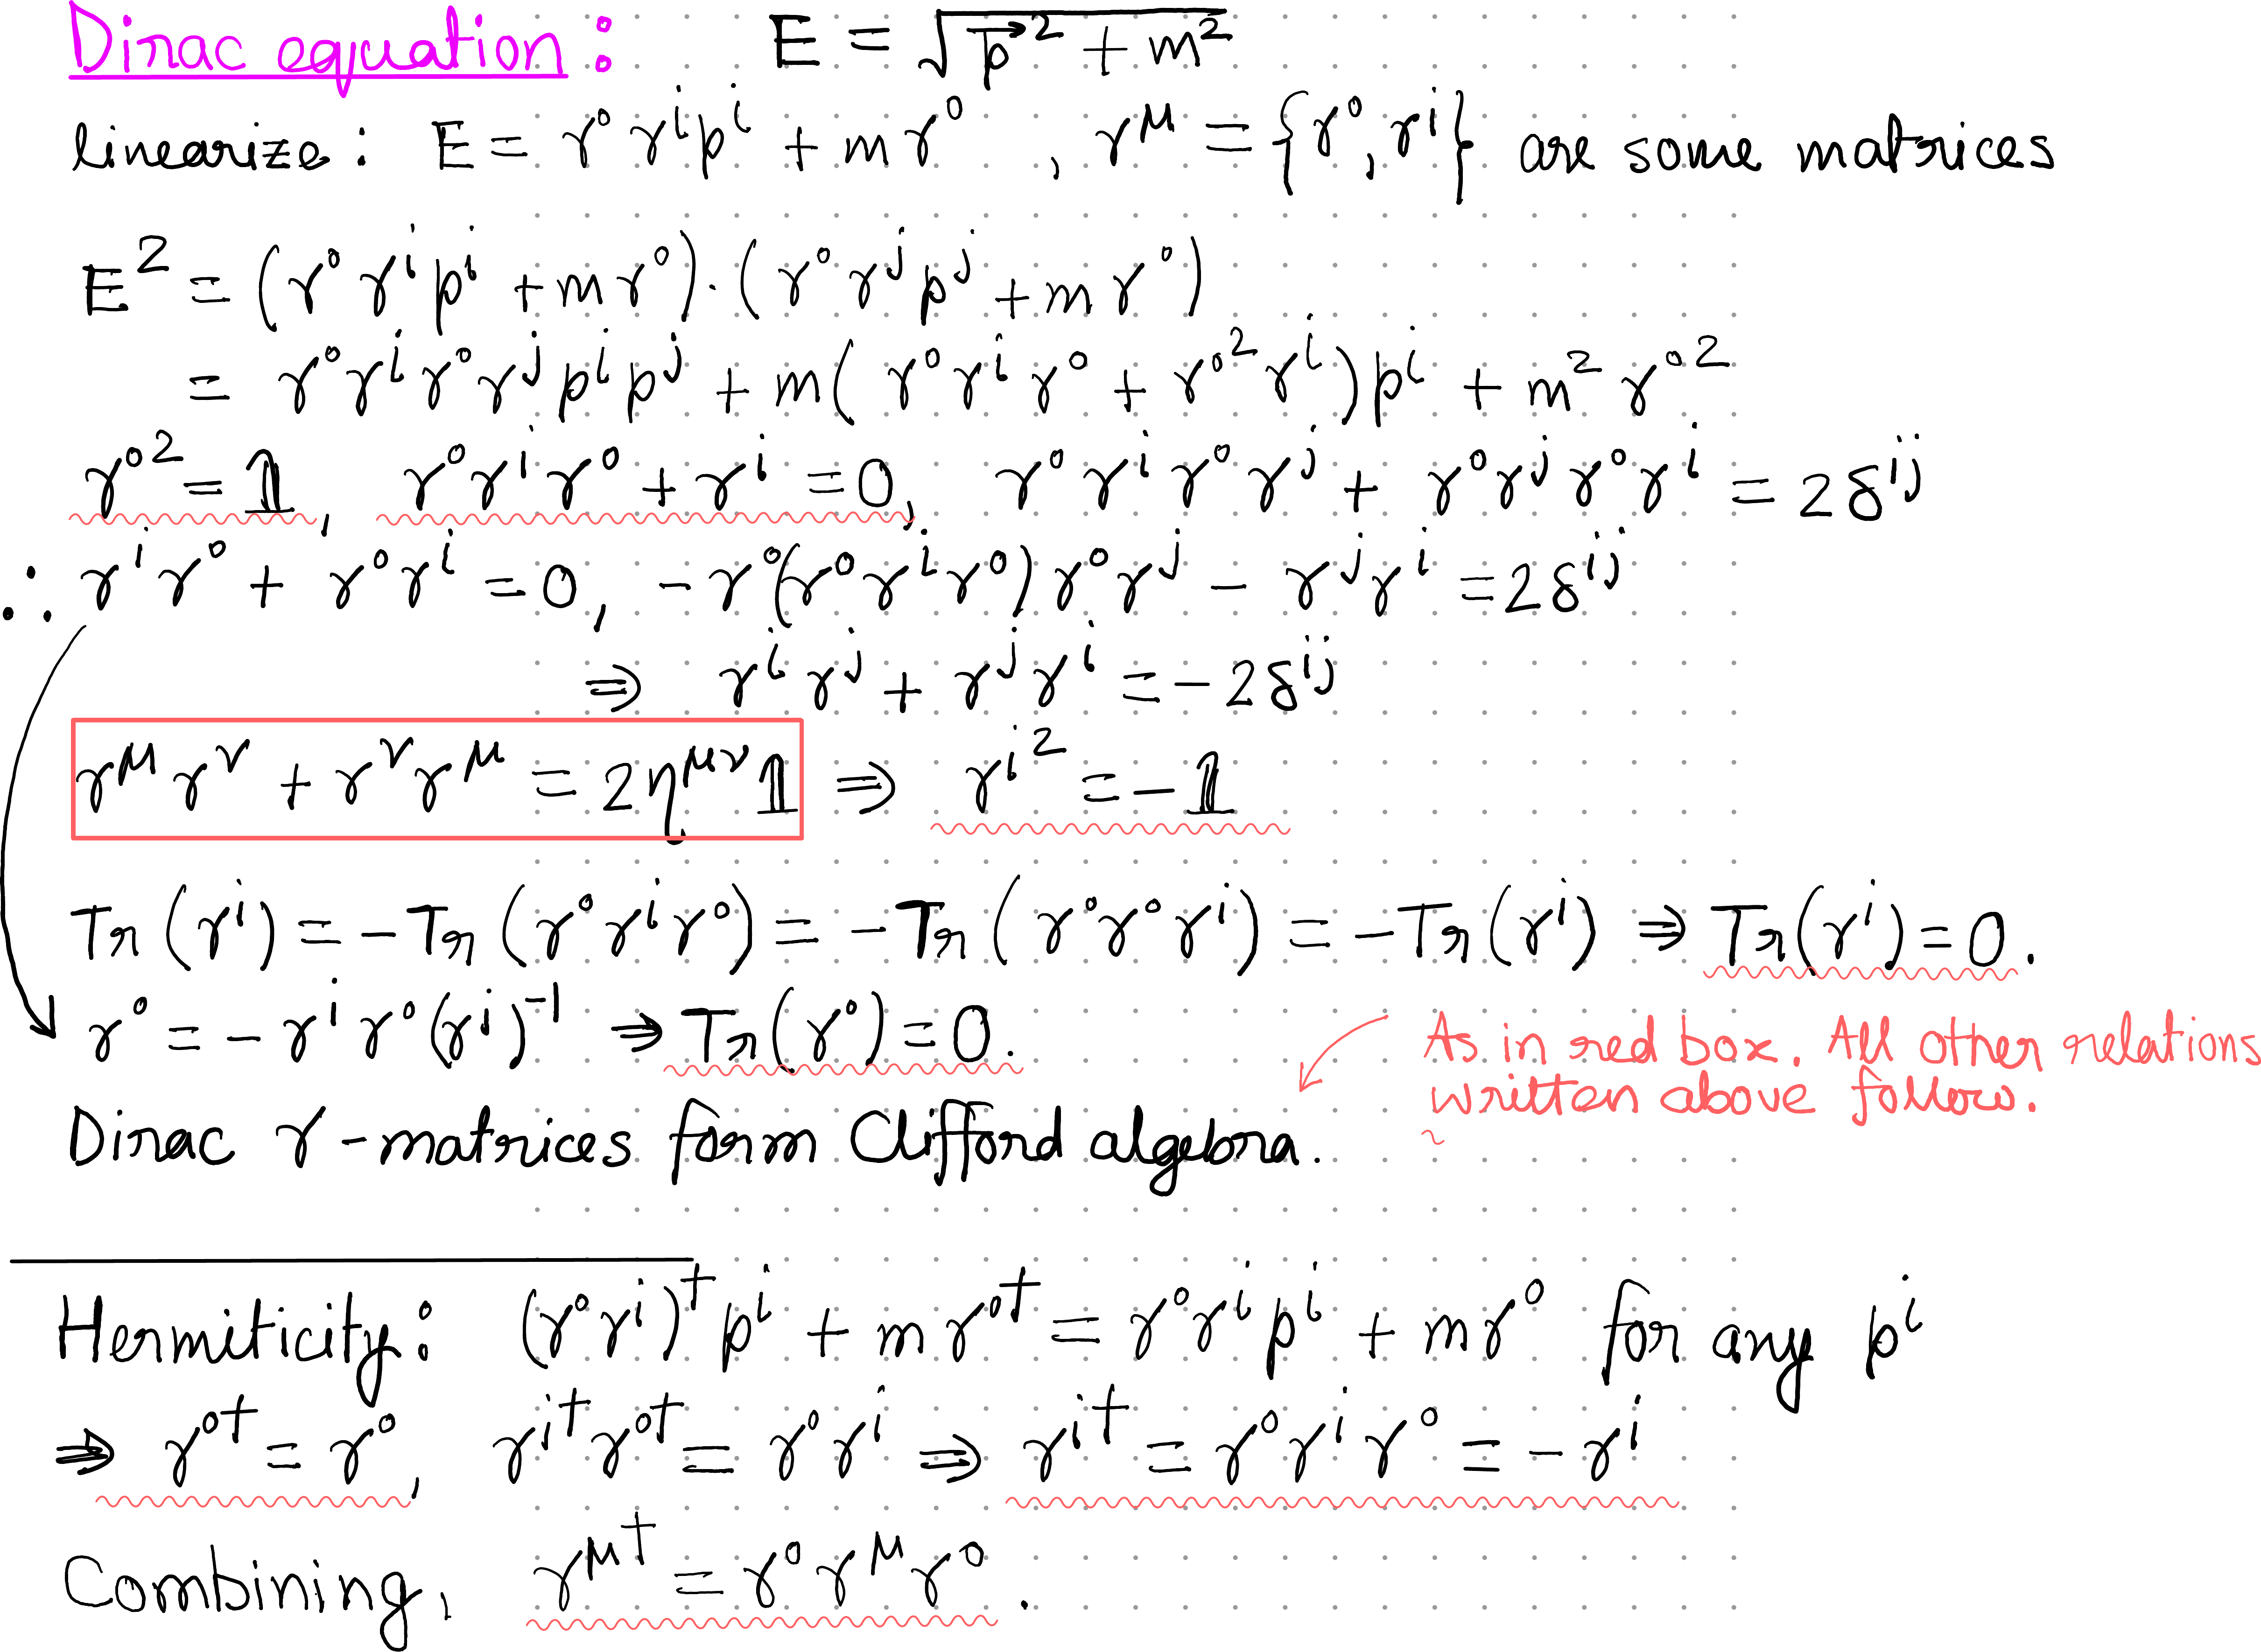 Dirac equation : E = √(p⃗² + m²)
linearize : E = γ⁰γⁱpⁱ + mγ⁰ , γ^μ = {γ⁰, γⁱ} are some matrices
E² = (γ⁰γⁱpⁱ + mγ⁰)·(γ⁰γʲpʲ + mγ⁰)
= γ⁰γⁱγ⁰γʲpⁱpʲ + m(γ⁰γⁱγ⁰ + γ⁰²γⁱ)pⁱ + m²γ⁰²
γ⁰² = 𝟙, γ⁰γⁱγ⁰ + γⁱ = 0, γ⁰γⁱγ⁰γʲ + γ⁰γʲγ⁰γⁱ = 2δⁱʲ
∴ γⁱγ⁰ + γ⁰γⁱ = 0, -γ⁰(γ⁰γⁱγ⁰)γ⁰γʲ - γʲγⁱ = 2δⁱʲ
⇒ γⁱγʲ + γʲγⁱ = -2δⁱʲ
γ^μγ^ν + γ^νγ^μ = 2η^μν 𝟙 ⇒ γⁱ² = -𝟙
Tr(γⁱ) = -Tr(γ⁰γⁱγ⁰) = -Tr(γ⁰γ⁰γⁱ) = -Tr(γⁱ) ⇒ Tr(γⁱ) = 0.
γ⁰ = -γⁱγ⁰(γⁱ)⁻¹ ⇒ Tr(γ⁰) = 0.
As in red box. All other relations
written above follow.
Dirac γ-matrices form Clifford algebra.
Hermiticity : (γ⁰γⁱ)†pⁱ + mγ⁰† = γ⁰γⁱpⁱ + mγ⁰ for any pⁱ
⇒ γ⁰† = γ⁰, γⁱ†γ⁰† = γ⁰γⁱ ⇒ γⁱ† = γ⁰γⁱγ⁰ = -γⁱ
Combining, γ^μ† = γ⁰γ^μγ⁰.